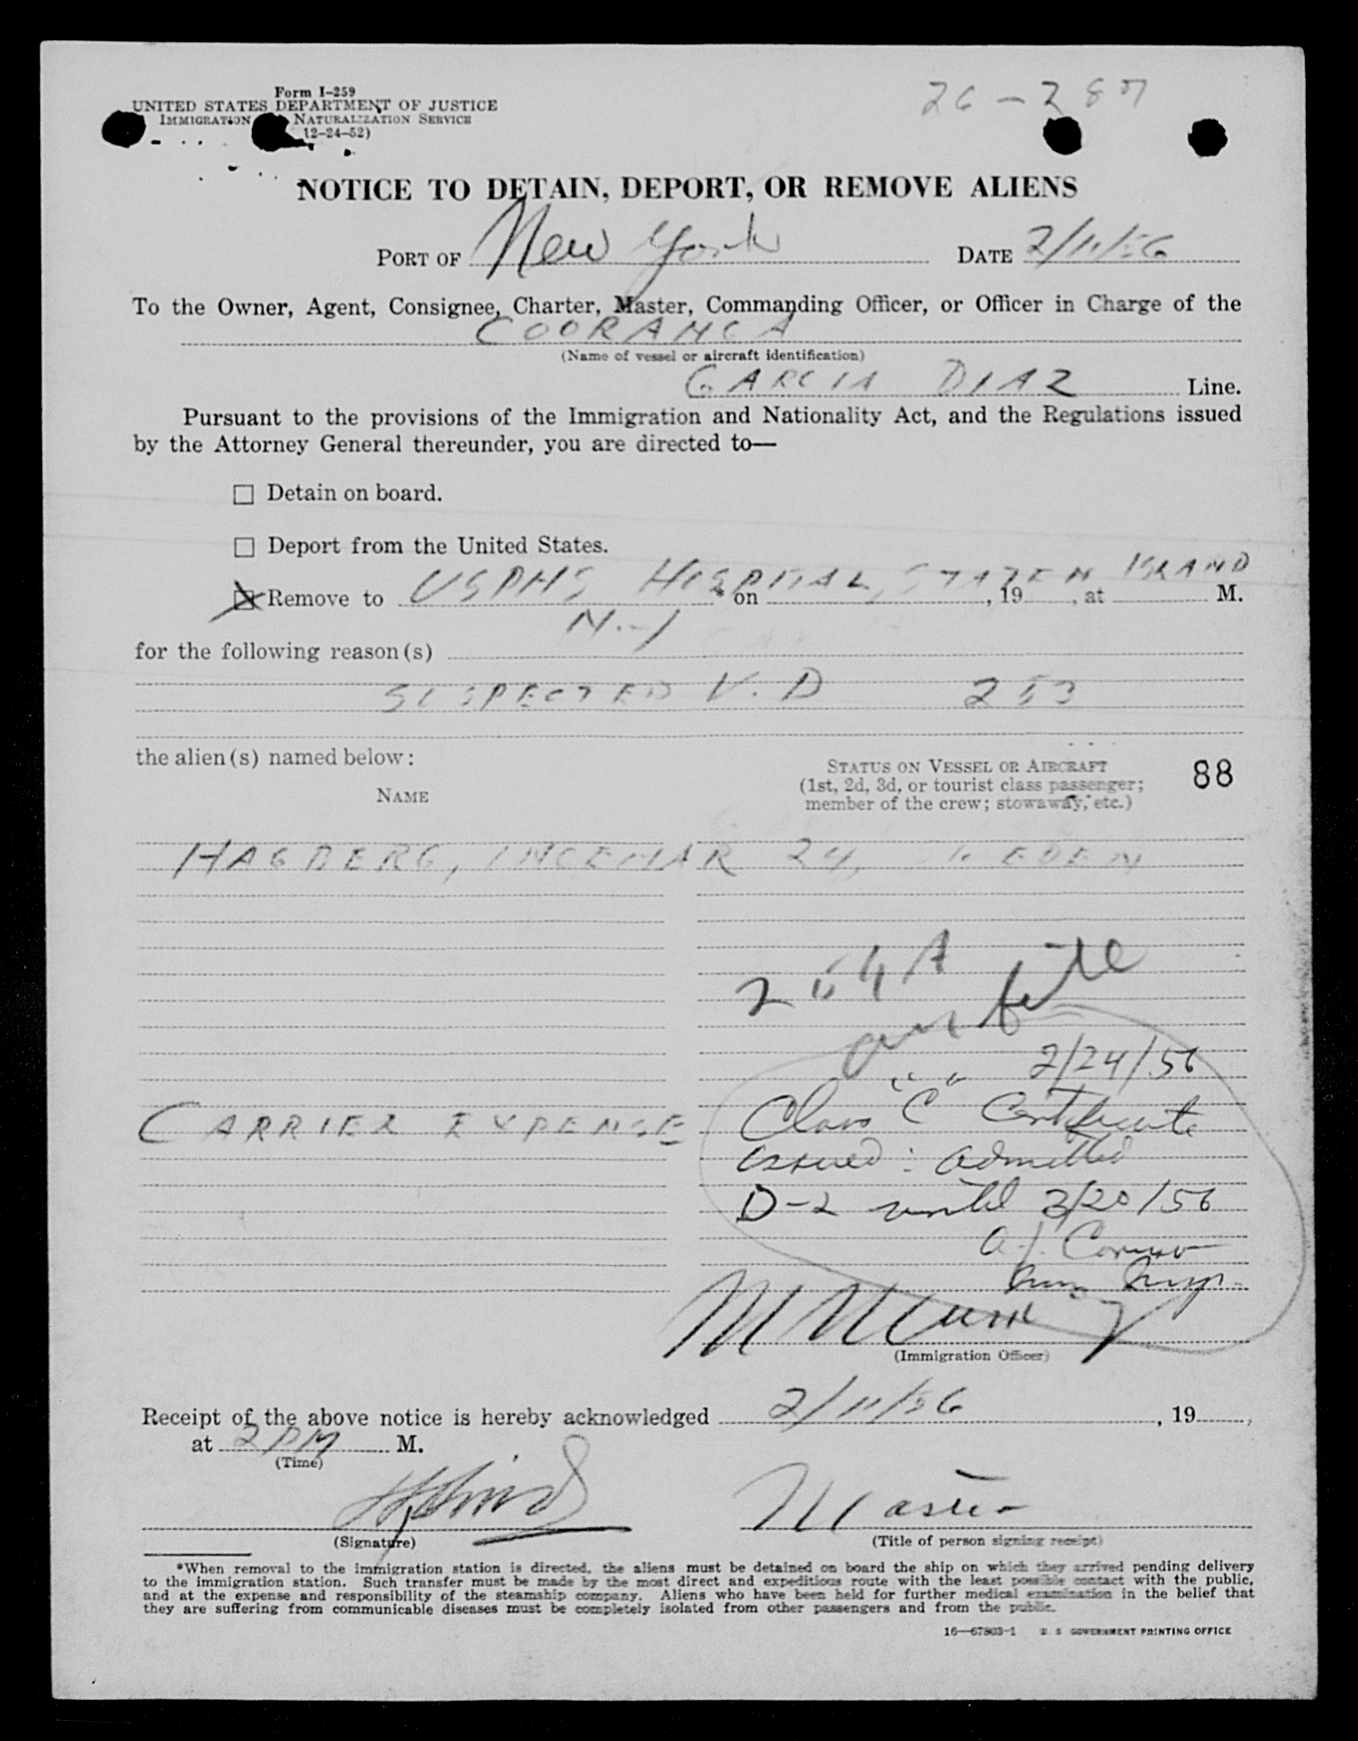 Form I-259
UNITED STATES DEPARTMENT OF JUSTICE
IMMIGRATION NATURALIZATION SERVICE
12-24-52)
26-287
NOTICE TO DETAIN, DEPORT, OR REMOVE ALIENS
PORT OF New York DATE 2/11/56
To the Owner, Agent, Consignee, Charter, Master, Commanding Officer, or Officer in Charge of the
COORANGA
(Name of vessel or aircraft identification)
GARCIA DIAZ Line.
Pursuant to the provisions of the Immigration and Nationality Act, and the Regulations issued
by the Attorney General thereunder, you are directed to—
Detain on board.
Deport from the United States.
Remove to USPHS HOSPITAL, STATEN ISLAND * on , 19 , at M.
N.Y
for the following reason(s)
SUSPECTED V.D 253
the alien(s) named below:
NAME
STATUS ON VESSEL OR AIRCRAFT
(1st, 2d, 3d, or tourist class passenger;
member of the crew; stowaway, etc.)
88
HAGBERG, INGEMAR 24, SWEDEN
254A
on file
2/24/56
CARRIER EXPENSE
Class "C" Certificate
issued: admitted
D-2 until 3/20/56
a.j. Caruso
Imm. Insp.
(Immigration Officer)
Receipt of the above notice is hereby acknowledged 2/11/56 , 19 ,
at 2 PM M.
(Time)
Master
(Signature)
(Title of person signing receipt)
*When removal to the immigration station is directed, the aliens must be detained on board the ship on which they arrived pending delivery
to the immigration station. Such transfer must be made by the most direct and expeditious route with the least possible contact with the public,
and at the expense and responsibility of the steamship company. Aliens who have been held for further medical examination in the belief that
they are suffering from communicable diseases must be completely isolated from other passengers and from the public.
16—67803-1 U S GOVERNMENT PRINTING OFFICE